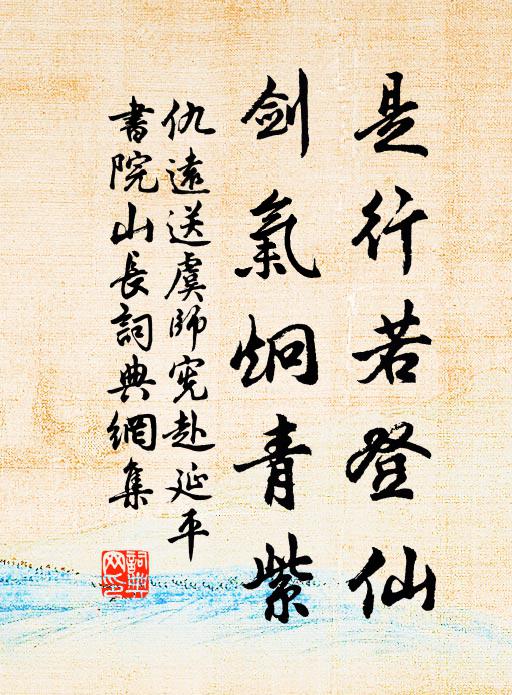 是行若登仙
劍氣炯青紫
仇遠送虞師宪赴延平
書院山長詞典網集
詞典網印